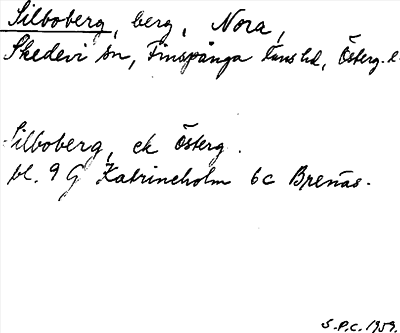 Silboberg, berg, Nora,
Skedevi sn, Finspånga länshd, Österg. l.
Silboberg, ek Österg.
bl. 9 G Katrineholm 6c Brenäs.
S.P.C. 1959.